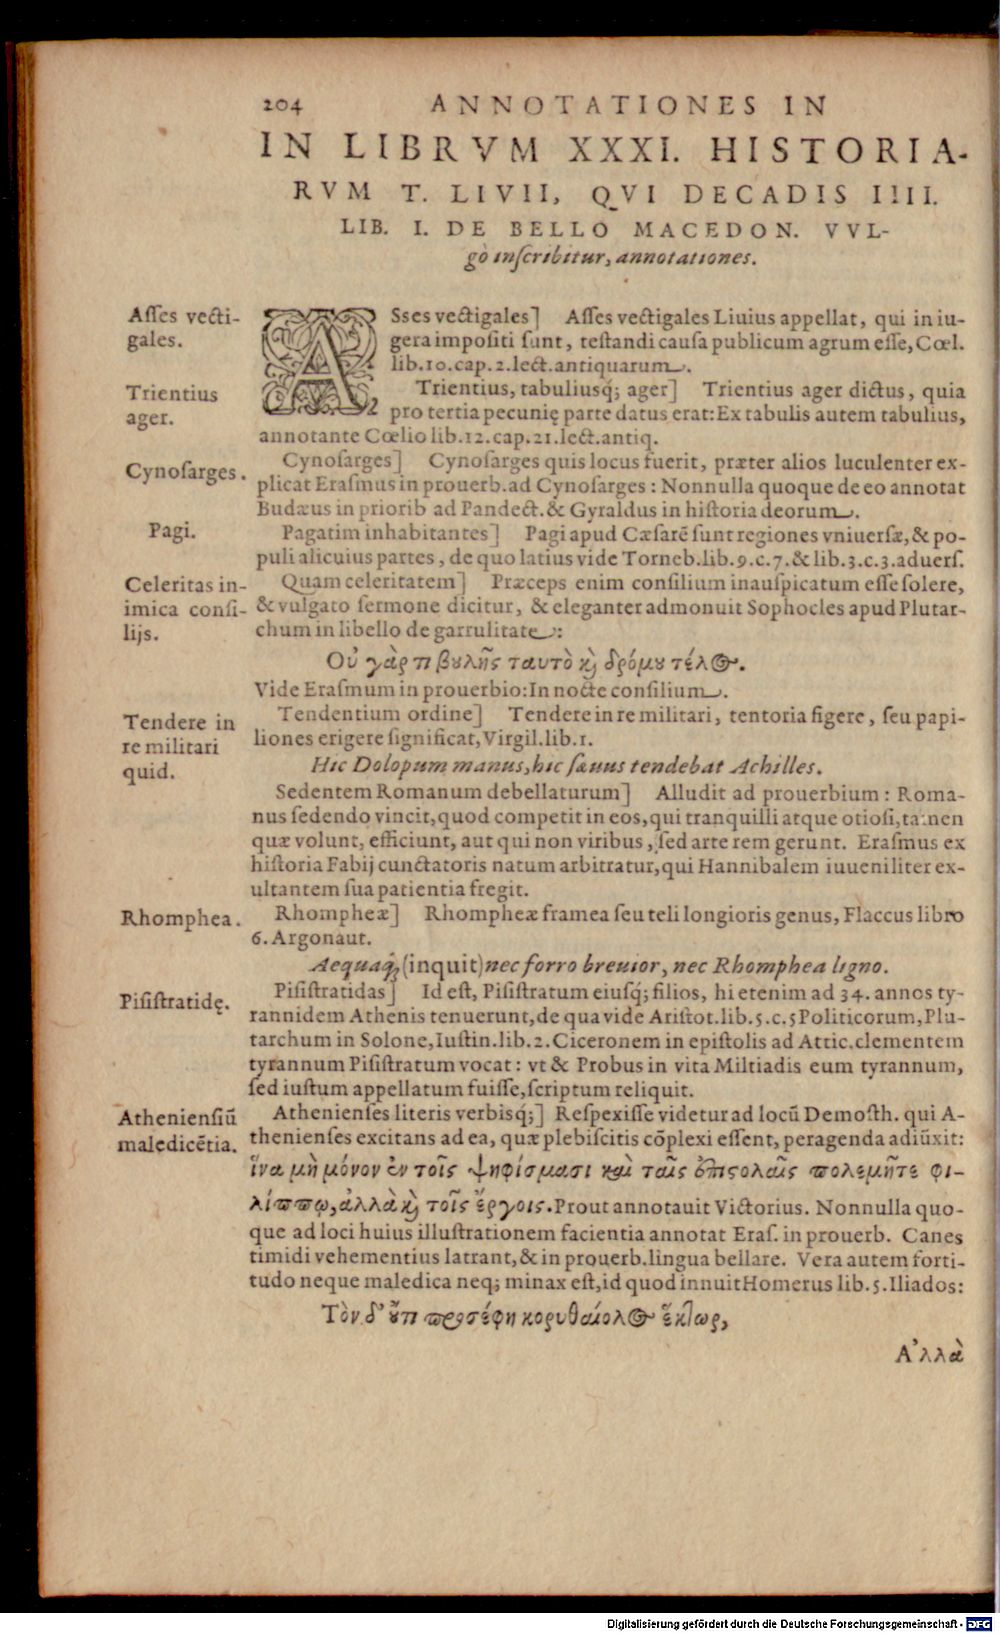 204 ANNOTATIONES IN
IN LIBRVM XXXI. HISTORIA-
RVM T. LIVII, QVI DECADIS IIII.
LIB. I. DE BELLO MACEDON. VVL-
gò inſcribitur, annotationes.
Aſſes vecti-
gales.
ASses vectigales] Aſſes vectigales Liuius appellat, qui in iu-
gera impoſiti ſunt, teſtandi cauſa publicum agrum eſſe, Cœl.
lib.10.cap.2.lect.antiquarum.
Trientius
ager.
Trientius, tabuliusq́; ager] Trientius ager dictus, quia
pro tertia pecunię parte datus erat: Ex tabulis autem tabulius,
annotante Cœlio lib.12.cap.21.lect.antiq.
Cynoſarges.
Cynoſarges] Cynoſarges quis locus fuerit, præter alios luculenter ex-
plicat Eraſmus in prouerb.ad Cynoſarges : Nonnulla quoque de eo annotat
Budæus in priorib ad Pandect.& Gyraldus in hiſtoria deorum.
Pagi.
Pagatim inhabitantes] Pagi apud Cæſarē ſunt regiones vniuerſæ, & po-
puli alicuius partes, de quo latius vide Torneb.lib.9.c.7.& lib.3.c.3.aduerſ.
Celeritas in-
imica conſi-
lijs.
Quam celeritatem] Præceps enim conſilium inauſpicatum eſſe ſolere,
& vulgato ſermone dicitur, & eleganter admonuit Sophocles apud Plutar-
chum in libello de garrulitate:
Οὐ γάρ τι βουλῆς ταυτὸ καὶ δρόμου τέλος.
Vide Eraſmum in prouerbio: In nocte conſilium.
Tendere in
re militari
quid.
Tendentium ordine] Tendere in re militari, tentoria figere, ſeu papi-
liones erigere ſignificat, Virgil.lib.1.
Hic Dolopum manus, hic ſæuus tendebat Achilles.
Sedentem Romanum debellaturum] Alludit ad prouerbium : Roma-
nus ſedendo vincit, quod competit in eos, qui tranquilli atque otioſi, tamen
quæ volunt, efficiunt, aut qui non viribus, ſed arte rem gerunt. Eraſmus ex
hiſtoria Fabij cunctatoris natum arbitratur, qui Hannibalem iuueniliter ex-
ultantem ſua patientia fregit.
Rhomphea.
Rhompheæ] Rhompheæ framea ſeu teli longioris genus, Flaccus libro
6. Argonaut.
Aequaq́; (inquit) nec forro breuior, nec Rhomphea ligno.
Piſiſtratidę.
Piſiſtratidas] Id eſt, Piſiſtratum eiuſq́; filios, hi etenim ad 34. annos ty-
rannidem Athenis tenuerunt, de qua vide Ariſtot.lib.5.c.5 Politicorum, Plu-
tarchum in Solone, Iuſtin.lib.2. Ciceronem in epiſtolis ad Attic.clementem
tyrannum Piſiſtratum vocat : vt & Probus in vita Miltiadis eum tyrannum,
ſed iuſtum appellatum fuiſſe, ſcriptum reliquit.
Athenienſiū
maledicētia.
Athenienſes literis verbisq́;] Reſpexiſſe videtur ad locū Demoſth. qui A-
thenienſes excitans ad ea, quæ plebiſcitis cōplexi eſſent, peragenda adiūxit:
ἵνα μὴ μόνον ἐν τοῖς ψηφίσμασι καὶ ταῖς ἐπιστολαῖς πολεμῆτε φι-
λίππῳ, ἀλλὰ καὶ τοῖς ἔργοις. Prout annotauit Victorius. Nonnulla quo-
que ad loci huius illuſtrationem facientia annotat Eraſ. in prouerb. Canes
timidi vehementius latrant, & in prouerb. lingua bellare. Vera autem forti-
tudo neque maledica neq; minax eſt, id quod innuit Homerus lib.5. Iliados:
Τὸν δ' οὔτι προσέφη κορυθαίολος ἕκτωρ,
Α'λλὰ
Digitalisierung gefördert durch die Deutsche Forschungsgemeinschaft - DFG